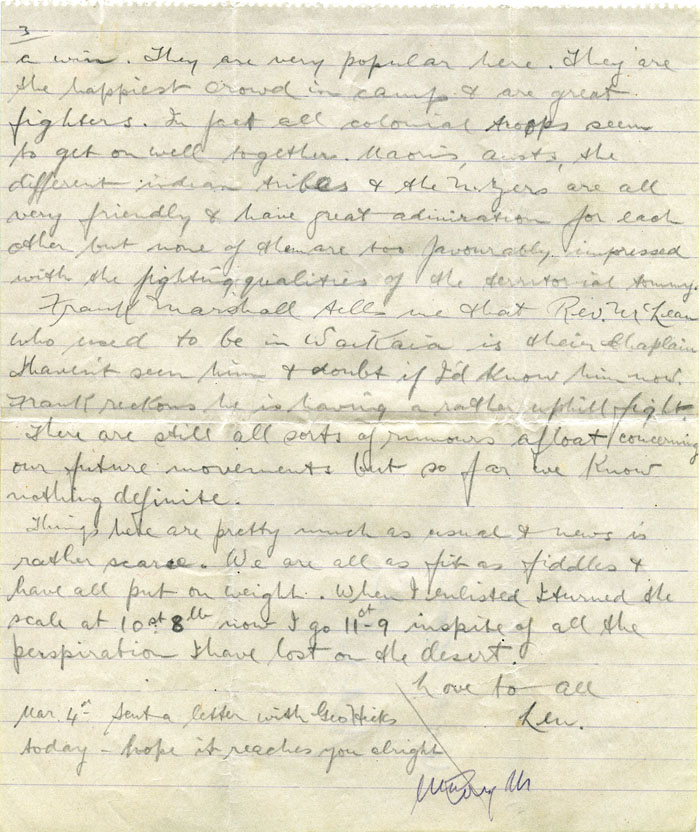 3
a win. They are very popular here. They are
the happiest crowd in camp & are great
fighters. In fact all colonial troops seem
to get on well together. Maoris, austs, the
different indian tribes & the N.Zers are all
very friendly & have great admiration for each
other but none of them are too favourably impressed
with the fighting qualities of the territorial tommy.
Frank Marshall tells me that Rev. McLean
who used to be in Waikaia is their Chaplain
I haven't seen him & doubt if I'd know him now.
Frank reckons he is having a rather uphill fight.
There are still all sorts of rumours afloat concerning
our future movements but so far we know
nothing definite.
Things here are pretty much as usual & news is
rather scarce. We are all as fit as fiddles &
have all put on weight. When I enlisted I turned the
scale at 10st 8lb now I go 11st-9 inspite of all the
perspiration I have lost on the desert.
Love to all
Len.
Mar. 4th Sent a letter with Geo Hicks
today - hope it reaches you alright